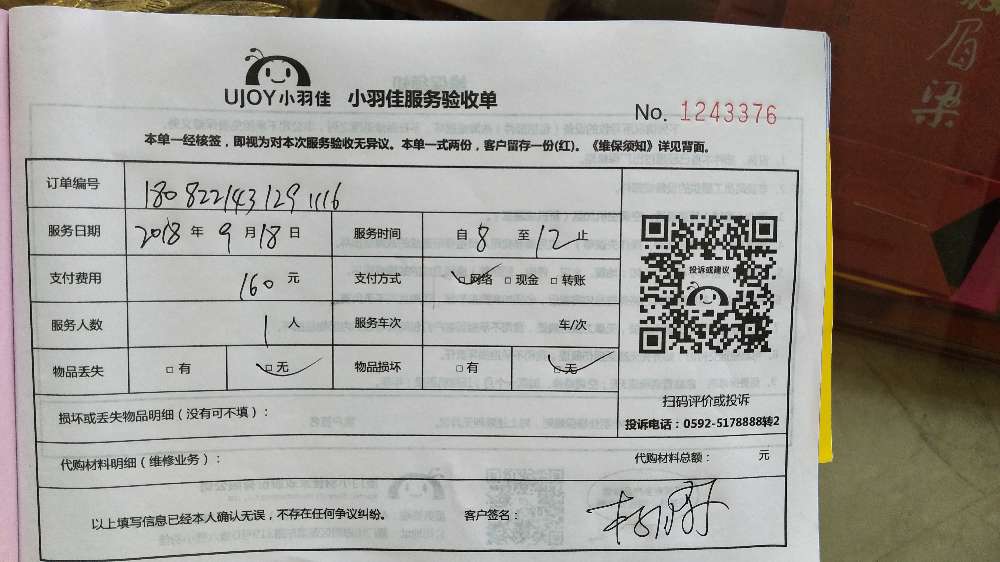 眉
梁
UJOY小羽佳 小羽佳服务验收单
No. 1243376
本单一经核签，即视为对本次服务验收无异议。本单一式两份，客户留存一份(红)。《维保须知》详见背面。
订单编号 1808221431291116
服务日期 2018 年 9 月 18 日 服务时间 自 8 至 12 止
支付费用 160 元 支付方式 □ 网络 □ 现金 □ 转账
投诉或建议
服务人数 1 人 服务车次 车/次
物品丢失 □ 有 □ 无 物品损坏 □ 有 □ 无
扫码评价或投诉
投诉电话：0592-5178888转2
损坏或丢失物品明细（没有可不填）：
代购材料明细（维修业务）： 代购材料总额： 元
以上填写信息已经本人确认无误，不存在任何争议纠纷。 客户签名：